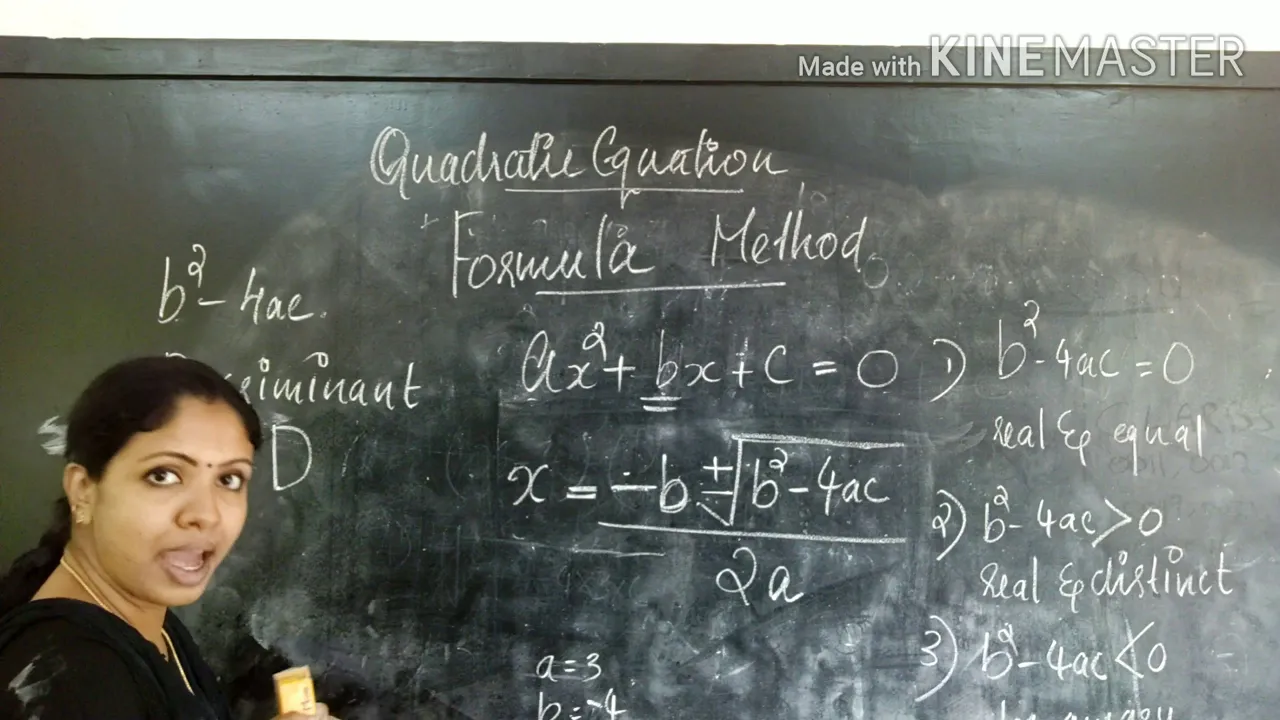 Made with KINEMASTER
Quadratic Equation
Formula Method
b² - 4ac.
D
ax² + bx + c = 0
x = -b ± √b² - 4ac
2a
a = 3
b = -4
1) b² - 4ac = 0
real & equal
2) b² - 4ac > 0
real & distinct
3) b² - 4ac < 0